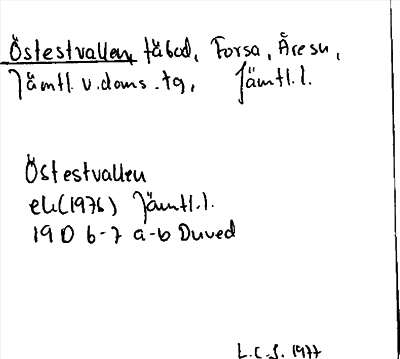 Östestvallen fäbod, Forsa, Åre sn,
Jämtl. v. doms. tg, Jämtl. l.
Östestvallen
ek (1976) Jämtl. l.
19 D 6-7 a-b Duved
L.C.S. 1977